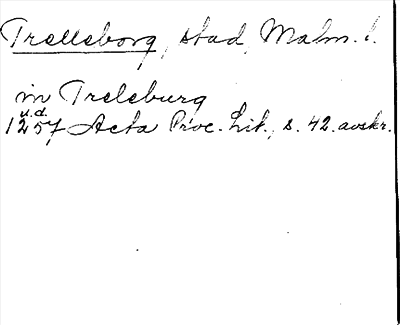 Trelleborg, stad, Malm. l.
in Treleburg
u.d.
1257 Acta Proc. Lit., s. 42. avskr.